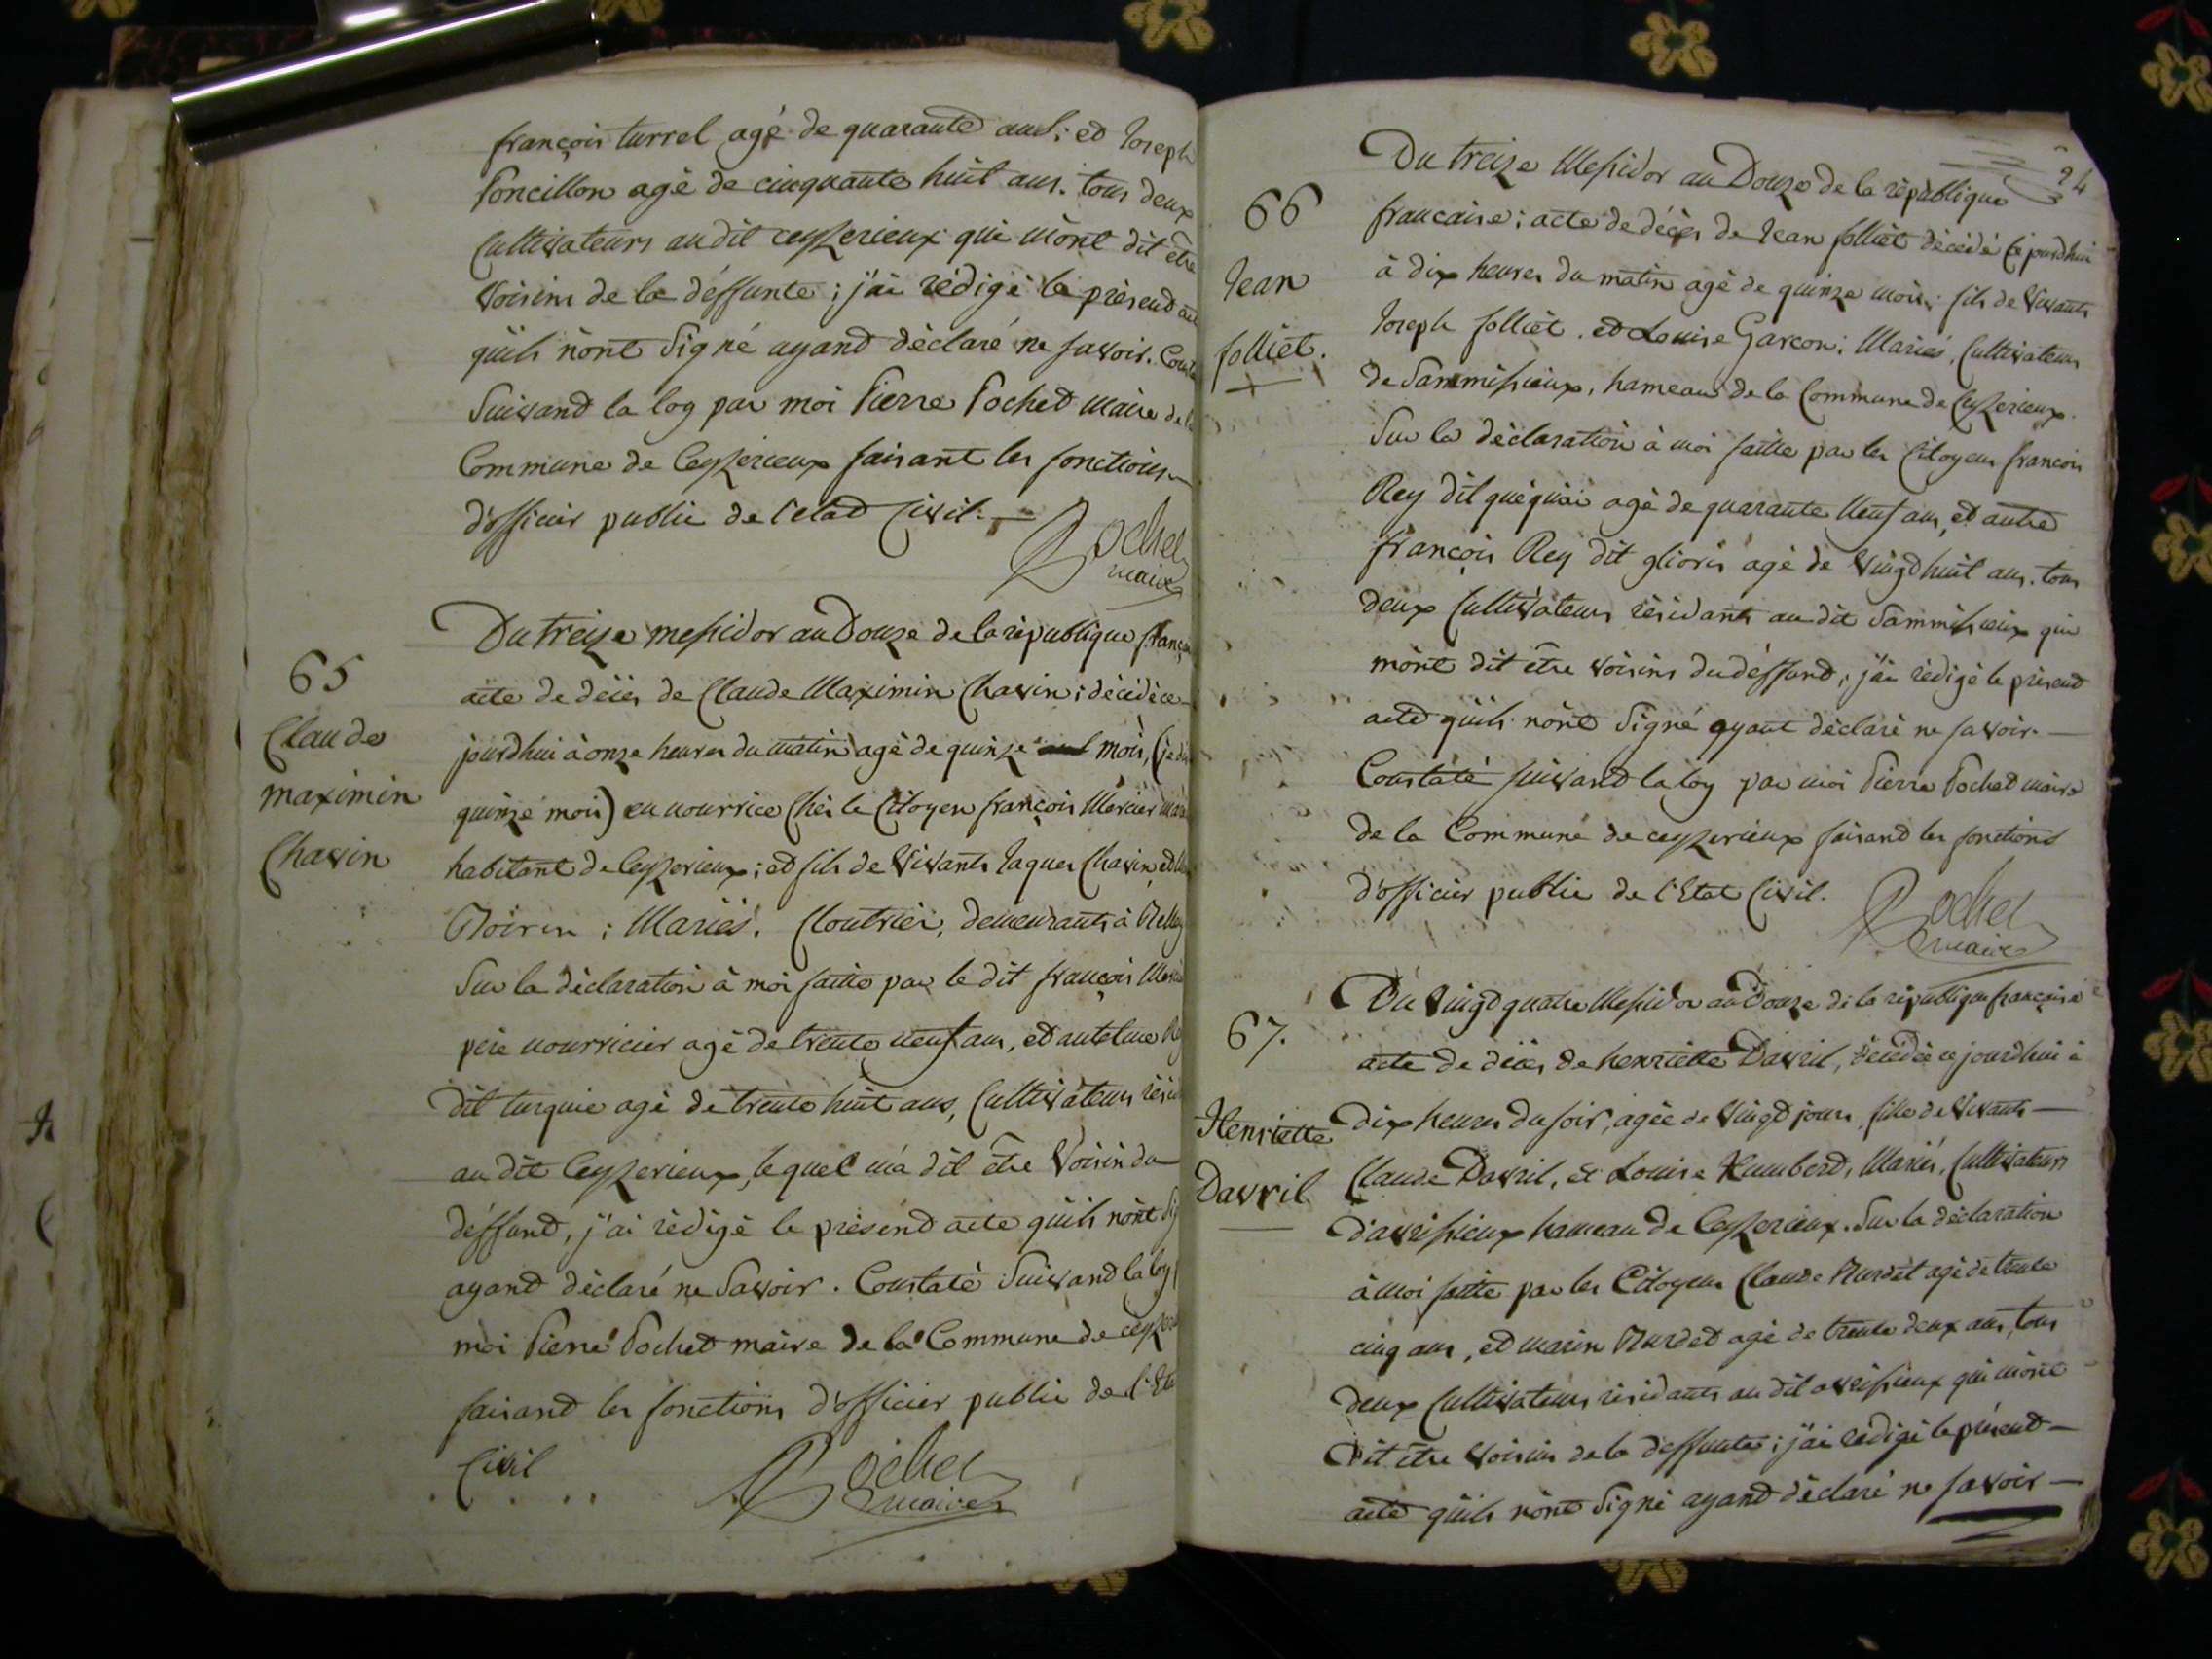 françois turrel agé de quarante ans; et Joseph
Poncillon agé de cinquante huit ans. tous deux
Cultivateurs audit ceyzerieux qui mònt dit être
Voisins de la déffunte; j'ai rédigé le présend
quils nònt Signé ayand déclaré ne savoir.
Suivand la loy par moi Pierre Pochet maire de
Commune de Ceyzerieux faisant les fonctions
d'officier public de l'etat Civil.
Pochet
maire
65
Claude
maximin
Chavin
Du treize messidor an Douze de la république
acte de décès de Claude Maximin Chavin; décédé ce
jourdhui à onze heures du matin agé de quinze mois, (je dis
quinze mois) en nourrice Chés le Citoyen françois Mercier
habitant de Ceyzerieux; et fils de Vivants Jaques Chavin et
Moiren; Mariés. Cloutrier, demeurants à Belley
Sur la déclaration à moi faitte par le dit françois
pere nourricier agé de trente neuf ans, et antelme
dit turquie agé de trente huit ans, Cultivateurs
au dit Ceyzerieux, lequel m'a dit être Voisin du
déffund, j'ai rédigé le présend acte quils nònt
ayand déclaré ne Savoir. Constaté Suivand la loy
moi Pierre Pochet maire de la Commune de
faisand les fonctions d'officier public de l'
Civil
Pochet
maire
24
66
Jean
folliet.
Du treize Messidor an Douze de la république
francaise; acte de décès de Jean folliet décédé Cejourdhui
à dix heures du matin agé de quinze mois; fils de Vivants
Joseph folliet. et Louise Garcon; Mariés, Cultivateurs
de Sammissieux, hameau de la Commune de Ceyzerieux.
Sur la déclaration à moi faitte par les Citoyens francois
Rey dit quéquai agé de quarante Neuf ans, et autre
françois Rey dit glioris agé de Vingd huit ans. tous
deux Cultivateurs résidants au dit Sammissieux qui
mònt dit être voisins du déffund; j'ai rédigé le présend
acte quils nònt Signé ayant déclaré ne savoir.
Constaté suivand la loy par moi Pierre Pochet maire
de la Commune de ceyzerieux faisand les fonctions
d'officier public de l'Etat Civil.
Pochet
maire
67.
Henriette
Davril
Du Vingd quatre Messidor an Douze de la république française
acte de décès de henriette Davril, décédée ce jourdhui à
dix heures du soir, agée de Vingd jours, fille de Vivants
Claude Davril, et Louise Humberd, Mariés, Cultivateurs
d'avrissieux hameau de Ceyzerieux. Sur la déclaration
à moi faitte par les Citoyens Claude Burdet agé de trente
cinq ans, et marin Burdet agé de trente deux ans, tous
deux Cultivateurs résidants au dit avrissieux qui mònt
dit être voisins de la deffunte; j'ai rédigé le présend
acte quils nònt Signé ayand déclaré ne savoir